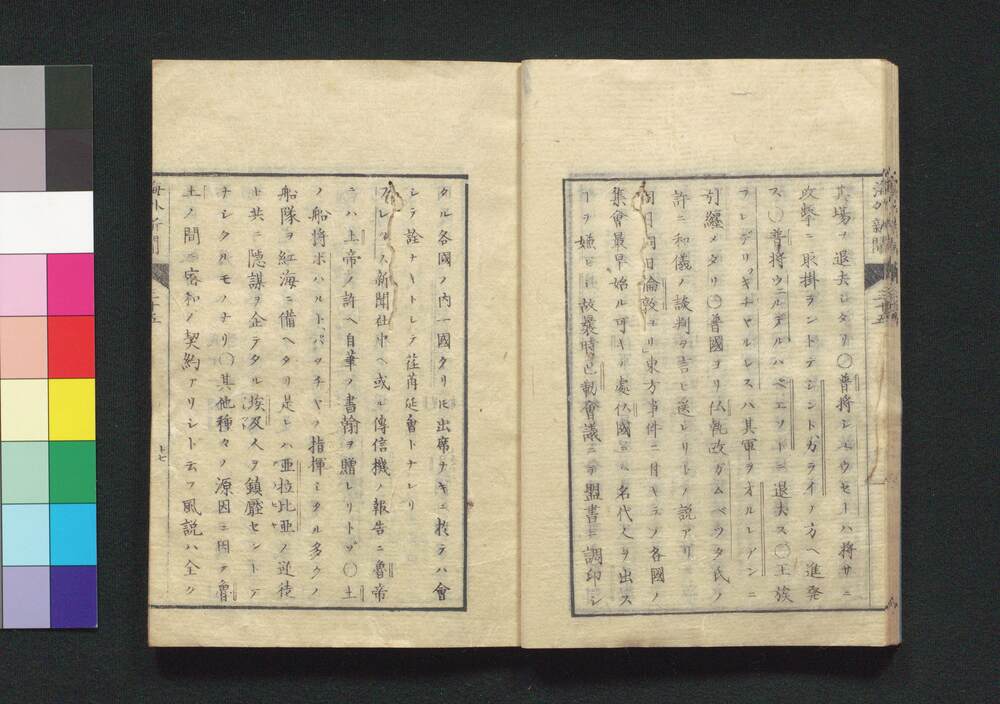 其場ヲ退去シタリ〇普将シエウセーハ将サニ
攻撃ニ取掛ラントテジントガライノ方ヘ進発
ス〇普将ウニルデルハベエソドニ退去ス〇王族
フレデリッキチャルレスハ其軍ヲオルレアンニ
引纏メタリ〇普國ヨリ仏執政ガムベッタ氏ノ
許ニ和儀ノ談判ヲ言ヒ送レリトノ説アリ
同日同日倫敦ヨリ東方事件ニ付キテノ各國ノ
集會最早始ル可キノ處仏國ニハ名代人ヲ出ス
ヿヲ嫌ヒシ故暴時已動會議ニテ盟書ニ調印シ
タル各國ノ内一國タリ𪜈出席ナキニ於テハ會
シテ詮ナキトシテ荏苒延會トナレリ
新聞社中ヘ或ル傳信機ノ報告ニ魯帝
ニハ上帝ノ許ヘ自筆ノ書翰ヲ贈レリトゾ〇土
ノ船将ホハルトパッチヤノ指揮シタル多クノ
船隊ヲ紅海ニ備ヘタリ是レハ亜拉比亜ノ逆徒
ト共ニ隠謀ヲ企テタル埃及人ヲ鎮靡セントテ
ナシタルモノナリ〇其他種々ノ源因ニ因テ魯
土ノ間ニ密和ノ契約アリシト云フ風説ハ全ク
海外新聞
十七